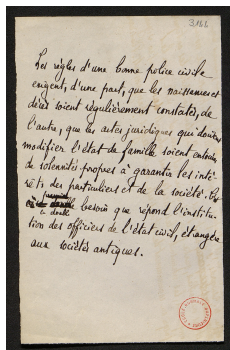 3166
Les règles d'une bonne police civile
exigent, d'une part, que les naissances et
décès soient régulièrement constatés, de
l'autre, que les actes juridiques qui doivent
modifier l'état de famille soient entourés
de solennités propres à garantir les inté-
rêts des particuliers et de la société. C'est
à ce double besoin que répond l'institu-
tion des officiers de l'état civil, étrangère
aux sociétés antiques.